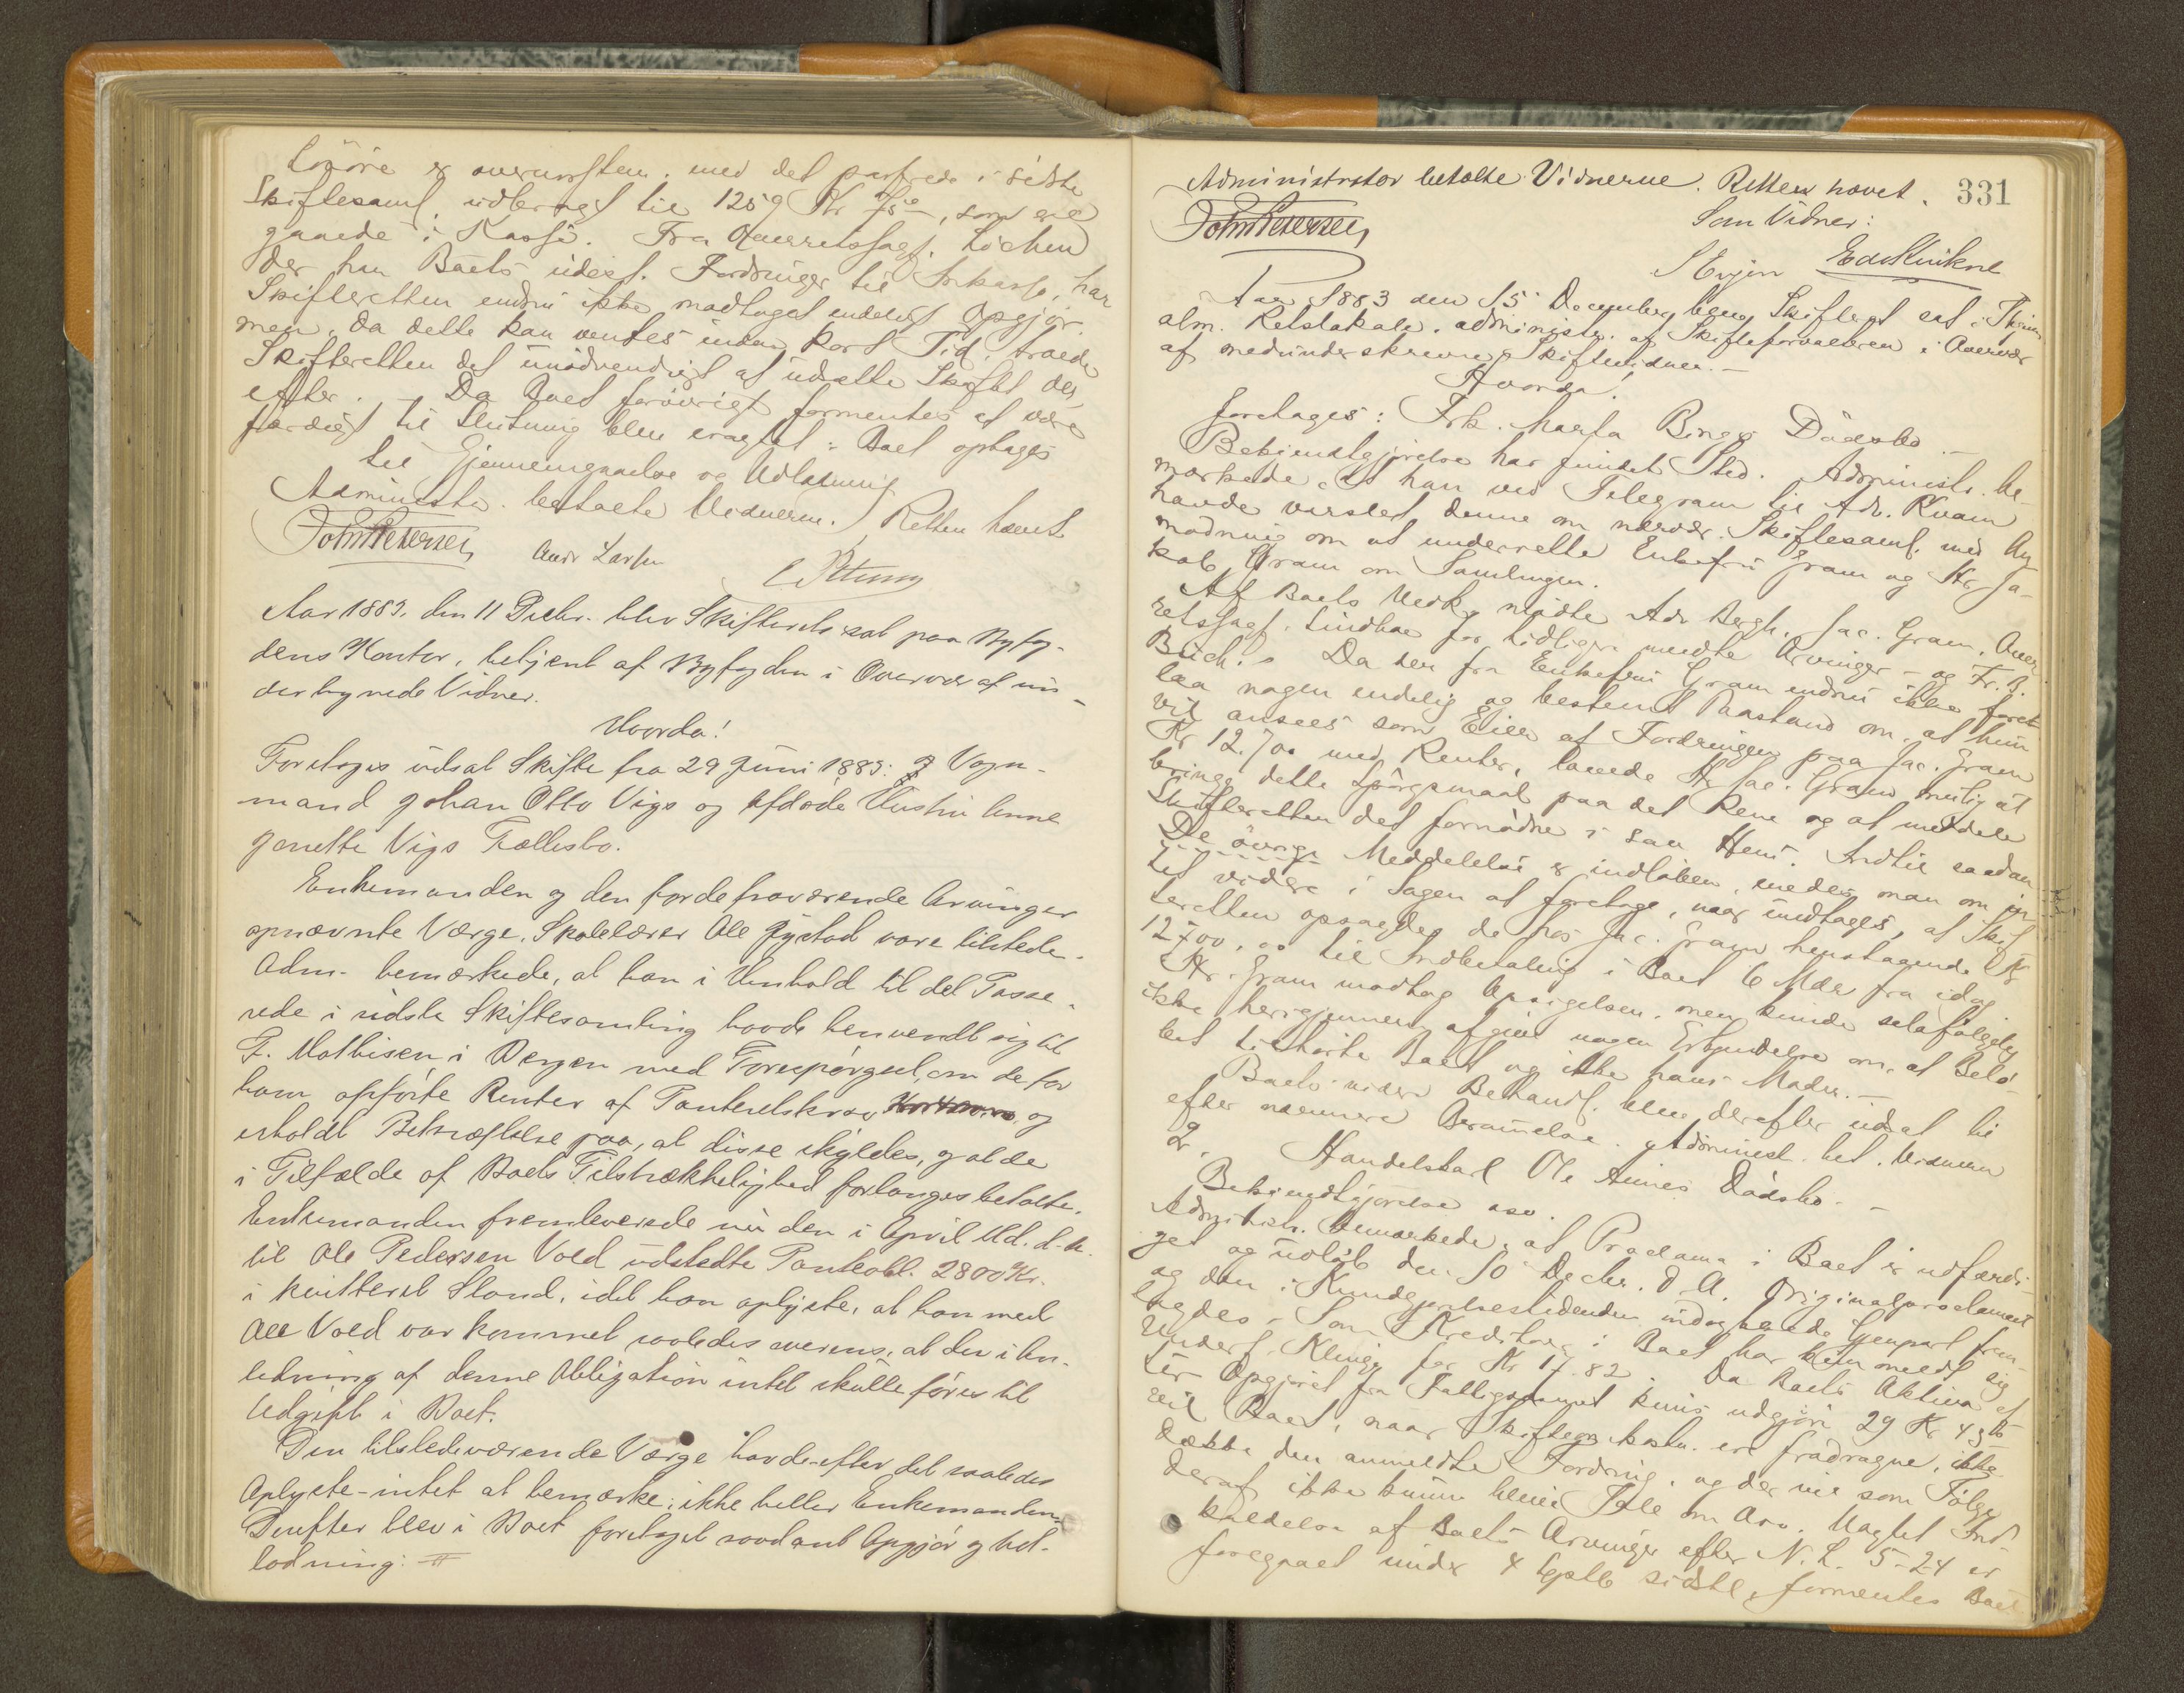 Løsøre er overensstem. med det passerede i sidste
Skiftesaml. udbragt til 1259 Kr 75 ø, som ere
gaaede i Kassø. Fra Overretssagf. Lochen
der har Boets udest. Fordringer til Inkasso, har
Skifteretten endnu ikke modtaget endeligt Opgjør.
men, da dette kan ventes inden kort Tid, troede
Skifteretten det unødvendigt at udsætte Skiftet der-
efter. – Da Boet forøvrigt formentes at være
færdigt til Slutning blev eragtet: Boet optages
til Gjennemgaaelse og Udlodning
Administr. betalte Vidnerne. Retten hævet
John Petersen Andr Larsen
Aar 1883, den 11 Decbr. blev Skifteret sat paa Byfog-
dens Kontor, betjent af Byfogden i Overvær af un-
dertegnede Vidner.
Hvorda!
Foretoges udsat Skifte fra 29 Juni 1883: i Vogn-
mand Johan Otto Vigs og afdøde Hustru Anne
Janette Vigs Fællesbo.
Enkemanden og den for de fraværende Arvinger
opnævnte Værge, Skolelærer Ole Gystad vare tilstede.
Adm. bemærkede, at han i Henhold til det Passe-
rede i sidste Skiftesamling havde henvendt sig til
F. Mathisen i Bergen med Forespørgsel, om de for
ham opførte Renter af Panteretskrav og
erholdt Bekræftelse paa, at disse skyldes, og at de
i Tilfælde af Boets Tilstrækkelighed forlanges betalte.
Enkemanden fremleverede nu den i April Md. d. A.
til Ole Pedersen Vold udstedte Panteobl. 2800 Kr.
i kvitteret Stand, idet han oplyste, at han med
Ole Vold var kommet saaledes overens, at der i An-
ledning af denne Obligation intet skulle føres til
Udgift i Boet.
Den tilstedeværende Værge havde efter det saaledes
Oplyste intet at bemærke; ikke heller Enkemanden.
Derefter blev i Boet foretaget saadant Opgjør og Ud-
lodning:
331
Administrator betalte Vidnerne. Retten hævet.
John Petersen Som Vidner:
Aar 1883 den 15 December blev Skifteret sat i Thjems
alm. Retslokale, administr. af Skifteforvalteren i Overvær
af medunderskrevne Skiftevidner. –
Hvorda!
foretages: Frk. Marta Bings Dødsbo. –
Bekjendtgjørelse har fundet Sted. Administr. be-
mærkede, at han ved Telegram til Adv. Kvam
havde varslet denne om nærvær. Skiftesaml. med An-
modning om at underrette Enkefru Gram og Hr. Ja-
kob Gram om Samlingen.
Af Boets Vedk. mødte Adv. Bergh, Jac. Gram, Over-
retssagf. Lindboe for tidligere mødte Arvinger – og Fr. B.
Buch. Da der fra Enkefru Gram endnu ikke fore-
laa nogen endelig og bestemt Paastand om, at hun
vil ansees som Eier af Fordringen paa Jac. Gram
Kr 12.700 med Renter, lovede Hr Jac. Gram mulig at
bringe dette Spørgsmaal paa det Rene og at meddele
Skifteretten det fornødne i saa Hens. Indtil saadan
De øvrige Meddelelse er indløben, enedes man om in-
tet videre i Sagen at foretage, naar undtages, at Skif-
teretten opsagde de hos Jac. Gram henstaaende Kr
12700,00 til Indbetaling i Boet 6 Mdr fra idag
Hr. Gram modtog Opsigelsen, men kunde selvfølgelig
ikke herigjennem afgive nogen Erkjendelse om, at Belø-
bet tilhørte Boet og ikke hans Moder. –
Boets videre Behandl. blev derefter udsat til
efter nærmere Berammelse. Administ. bet. Vidnerne
2. Handelskarl Ole Aunes Dødsbo. –
Bekjendtgjørelse osv.
Administr. bemærkede, at Proclama i Boet er udfærdi-
get og udløb den 10 Decbr. d. A. Originalproclamaet
og den i Kundgjørelsestidenden indtagne Gjenpart frem-
lagdes. Som Kreditor i Boet har kun meldt sig
Underf. Klingi for Kr 17.82. Da Boets Aktiva ef-
ter Opgjøret fra Fattigvæsenet kun udgjør 29 Kr 43 ø
vil Boet, naar Skifteomkostn. ere fradragne, ikke
dække den anmeldte Fordring, og der vil som Følge
deraf ikke kunne blive Tale om Arv. Uagtet Ind-
kaldelse af Boets Arvinger efter N. L. 5-2-4 er
foregaaet under 4 Septb sidstl. formentes Boet